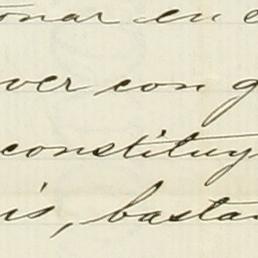 onar en e
ver con g
constituy
is, basta